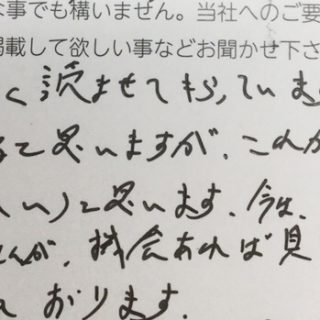 な事でも構いません。当社へのご要
掲載して欲しい事などお聞かせ下さ
く読ませてもらっています
ると思いますが、これか
い)と思います。今は、
せんが、機会あれば見
おります。